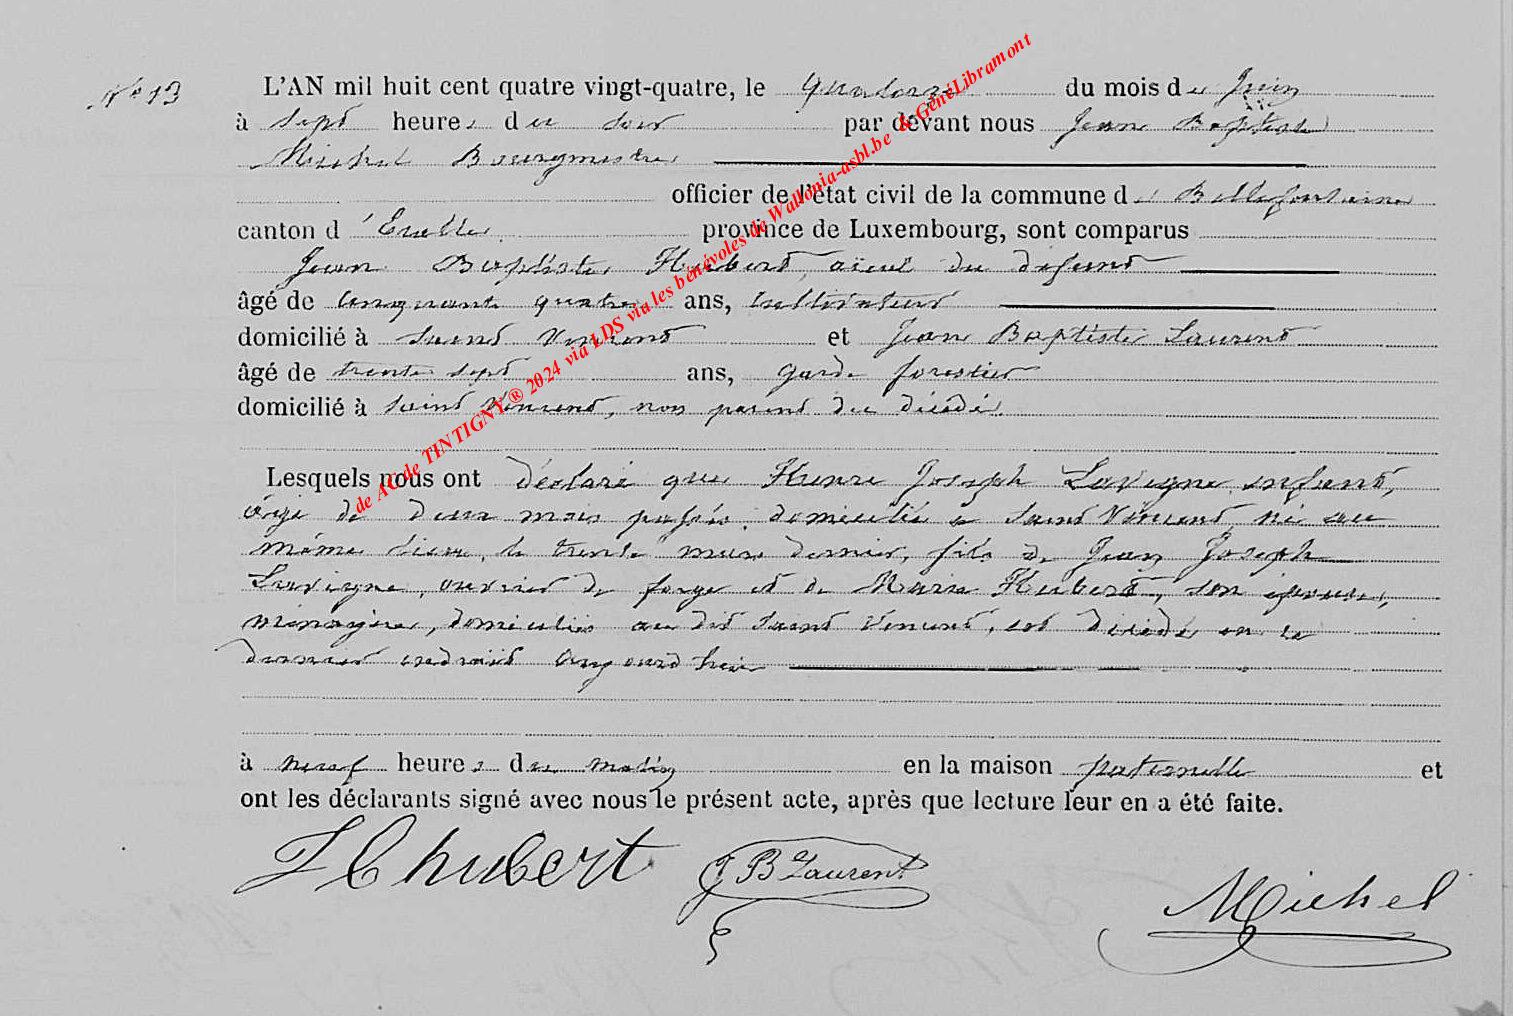 N° 13
L'AN mil huit cent quatre vingt-quatre, le quatorze du mois de Juin
à sept heures du soir par devant nous Jean Baptiste
Michel Bourgmestre
officier de l'état civil de la commune de Bellefontaine
canton d'Etalle province de Luxembourg, sont comparus
Jean Baptiste Hubert, aïeul du défunt
âgé de cinquante quatre ans, cultivateur
domicilié à Saint Vincent et Jean Baptiste Laurent
âgé de trente sept ans, garde forestier
domicilié à Saint Vincent, non parent du décédé.
Lesquels nous ont déclaré que Henri Joseph Lavigne, enfant,
âgé de deux mois passés, domicilié à Saint Vincent, né au
même lieu, le trente mars dernier, fils de Jean Joseph
Lavigne, ouvrier de forge et de Marie Hubert, son épouse,
ménagère, domiciliés au dit Saint Vincent, est décédé en ce
dernier endroit aujourd'hui
à neuf heures du matin en la maison paternelle et
ont les déclarants signé avec nous le présent acte, après que lecture leur en a été faite.
hubert JB Laurent
Michel
de AC de TINTIGNY® 2024 via LDS via les bénévoles de Wallonia-asbl.be & GénéLibramont